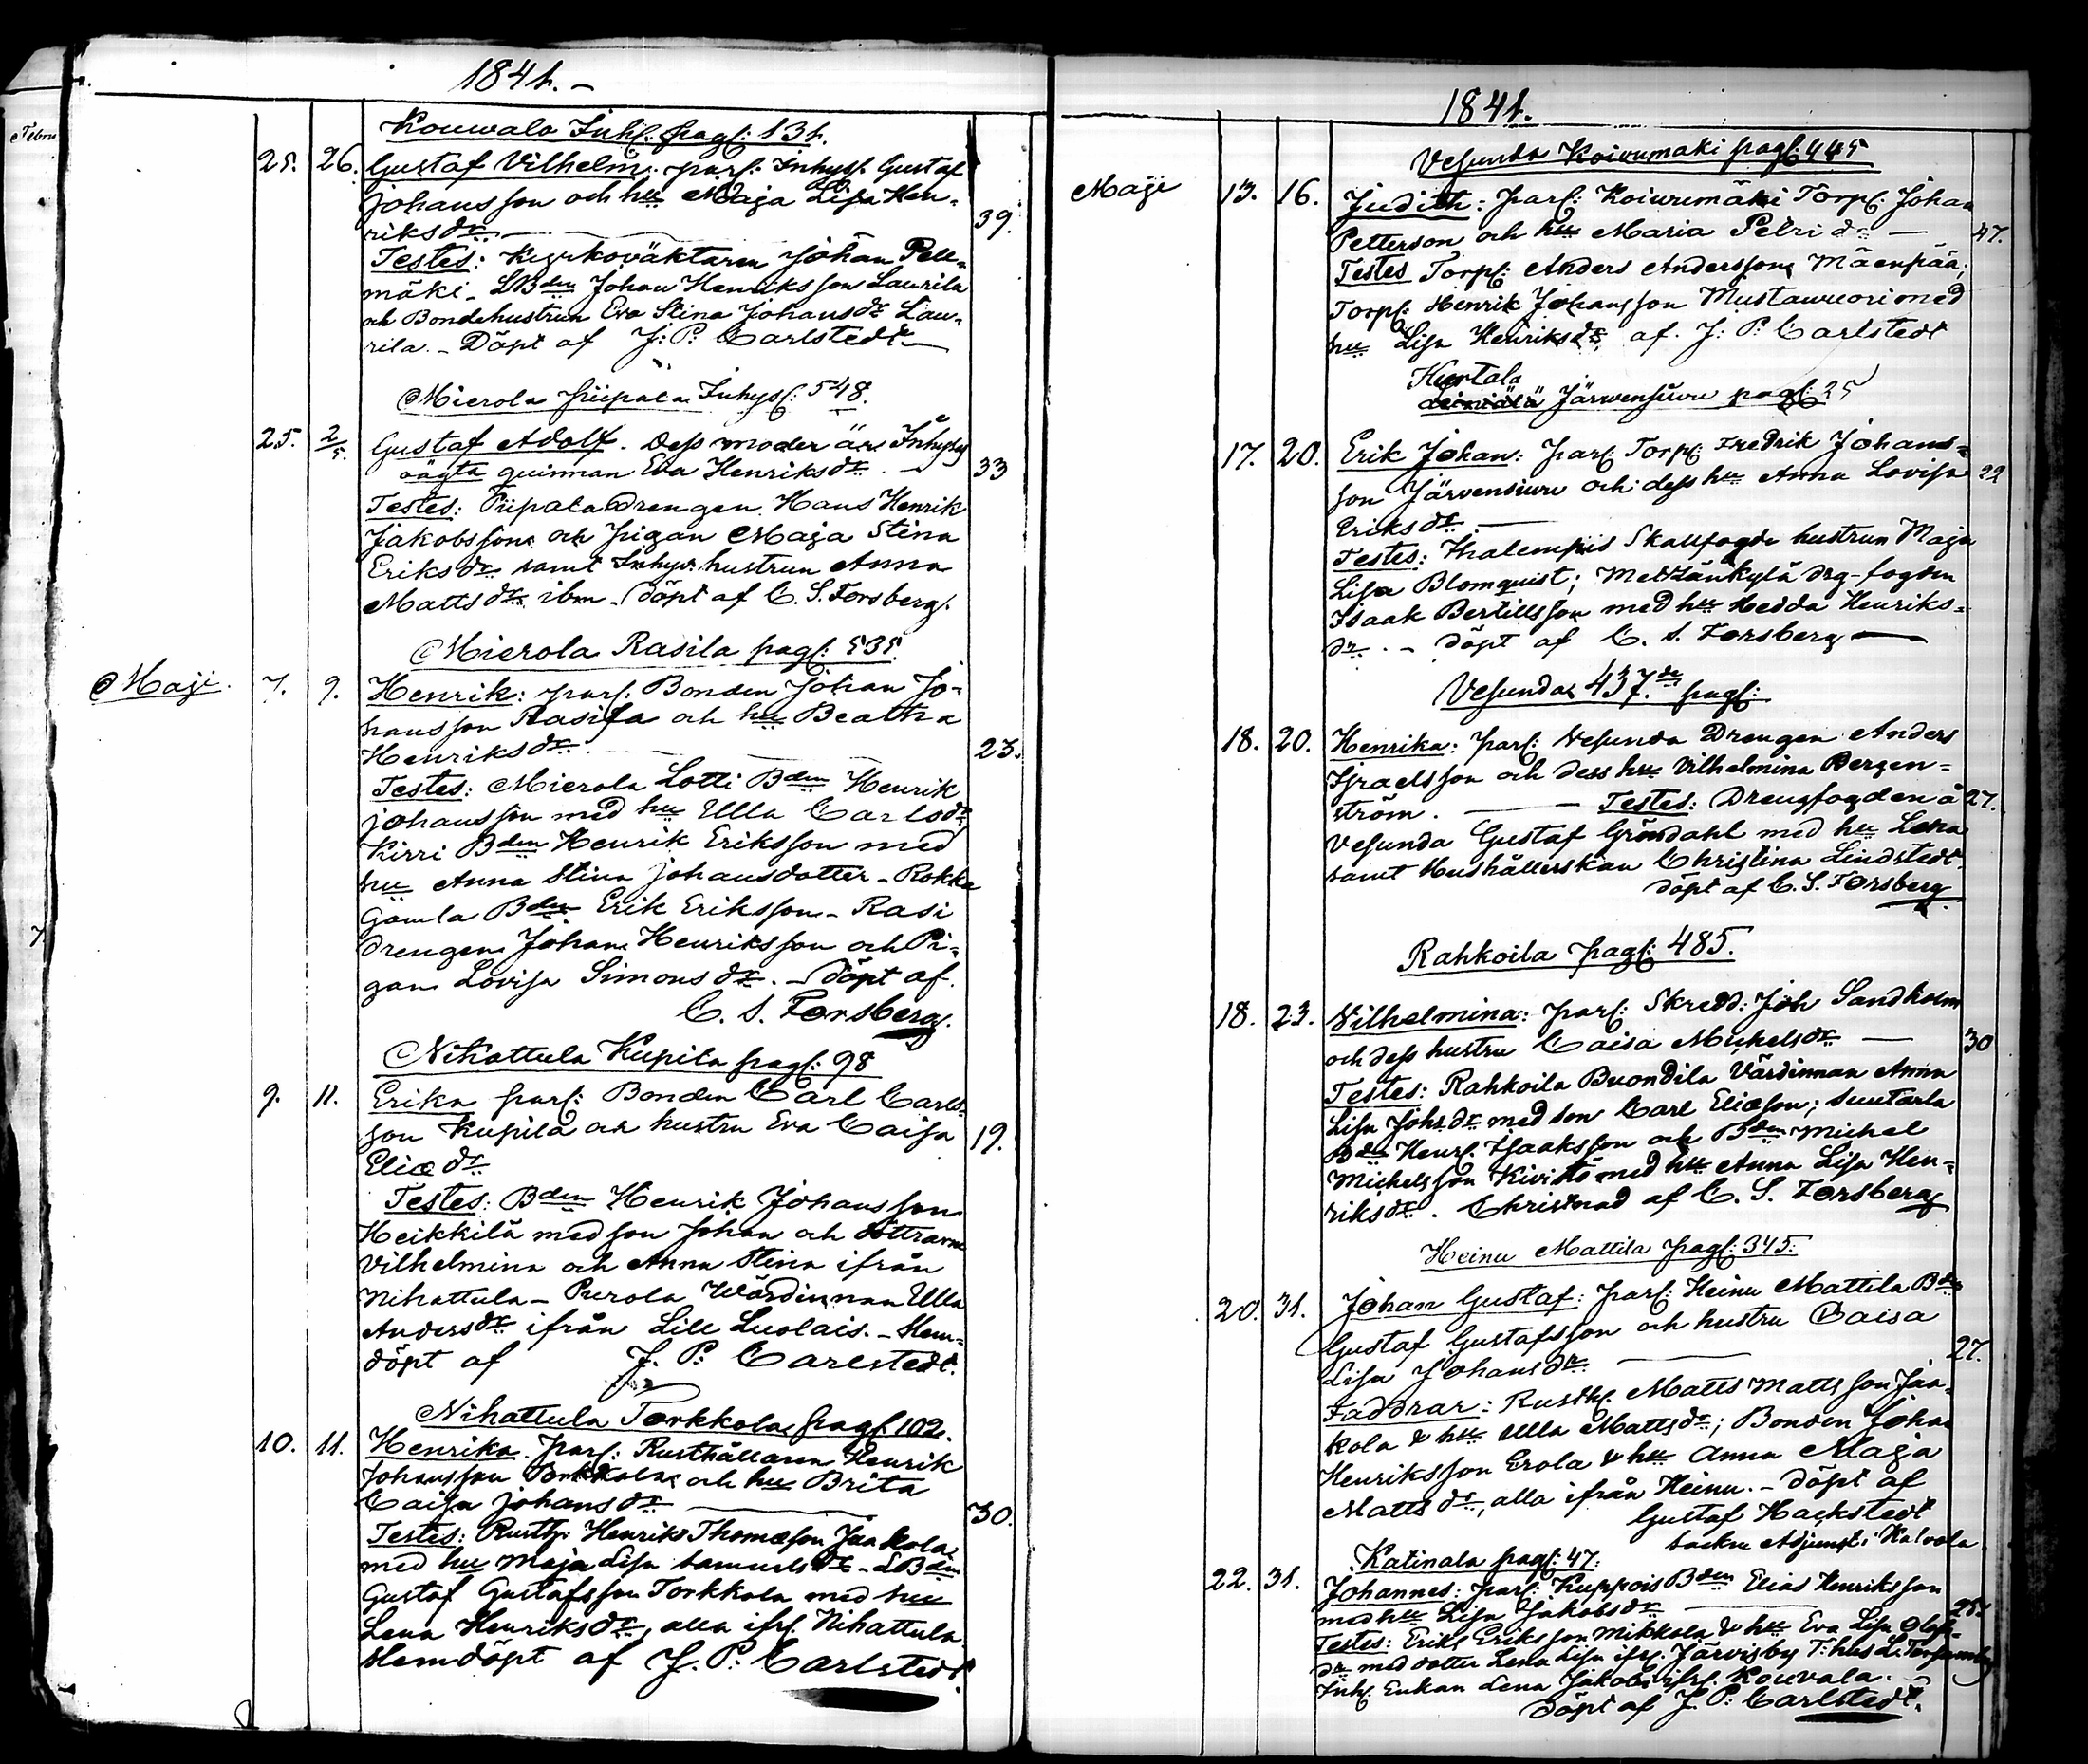 1841.
Kouwala Inh: pag: 131.
25. 26. Gustaf Vilhelm. par: Inhys: Gustaf
Johansson och hu Maja Lisa Hen-
riksdr. 39.
Testes: Kyrkoväktaren Johan Pelle-
mäki. LBden Johan Henriksson Laurila
och Bondehustrun Eva Stina Johansdr Lau-
rila. - Döpt af J: P: Carlstedt
Mierola Piipala Inhys: 548.
25. 2/5. Gustaf Adolf. Dess moder är Inhyses
oägta quinnan Eva Henriksdr. 33
Testes: Piipala Drengen Hans Henrik
Jakobsson och pigan Maja Stina
Eriksdr samt Inhys. hustrun Anna
Mattsdr ibm. Döpt af C. S. Forsberg.
Mierola Rasila pag: 535.
Maji. 7. 9. Henrik: par: Bonden Johan Jo-
hansson Rasila och hu Beatha
Henriksdr. 23.
Testes: Mierola Lotti Bden Henrik
Johansson med hu Ulla Carlsdr
Kirri Bden Henrik Eriksson med
hu Anna Stina Johansdotter - Rokka
Gamla Bden Erik Eriksson - Rasi
Drengen Johan Henriksson och Pi-
gan Lovisa Simonsdr. - Döpt af
C. S. Forsberg.
Nihattula Kupila pag: 98
9. 11. Erika par: Bonden Carl Carls-
son Kupila och hustru Eva Caisa
Eliædr 19.
Testes: Bden Henrik Johansson
Heikkilä med son Johan och döttrarne
Vilhelmina och Anna Stina ifrån
Nihattula - Purola Wärdinnan Ulla
Andersdr ifrån Lill Luolais. - Hem-
döpt af J. P: Carlstedt.
Nihattula Torkkola pag: 102.
10. 11. Henrika. par: Rusthållaren Henrik
Johansson Torkkola och hu Brita
Caisa Johansdr 30.
Testes: Rusth: Henrik Thomæson Jaakola
med hu Maja Lisa Samuelsdr - LBden
Gustaf Gustafsson Torkkola med hu
Lena Henriksdr, alla ifr: Nihattula
Hemdöpt af J. P: Carlstedt.
1841.
Vesunda Koivumäki pag: 445
Maji 13. 16. Judith: par: Koivumäki Torp: Johan
Petterson och hu Maria Petri dr 47.
Testes Torp: Anders Andersson Mäenpää;
Torp: Henrik Johansson Mustawuori med
hu Lisa Henriksdr, af. J: P: Carlstedt
Hurtala
Järwensuu pag: 25
17. 20. Erik Johan: par: Torp: Fredrik Johans-
son Järvensuu och dess hu Anna Lovisa 22
Eriksdr.
Testes: Skallfogde hustrun Maja
Lisa Blomquist; drg-fogden
Isaak Bertillsson med hu Hedda Henriks-
dr. - döpt af C. S. Forsberg
Vesunda 437.de pag:
18. 20. Henrika: par: Vesunda Drengen Anders
Israelsson och dess hu Vilhelmina Bergen-
ström. Testes: Drengfogden å 27.
Vesunda Gustaf Gröndahl med hu Lena
samt Hushållerskan Christina Lindstedt.
döpt af C. S. Forsberg
Rahkoila pag: 485.
18. 23. Vilhelmina: par: Skredd: Joh Sandholm
och dess hustru Caisa Michelsdr 30
Testes: Rahkoila Buondila Värdinnan Anna
Lisa Johsdr med son Carl Eliæson; Suutarla
Bden Henr: Isaaksson och Bden Michel
Michelsson Kivistö med hu Anna Lisa Hen-
riksdr. Christnad af C. S. Forsberg
Heinu Mattila pag: 345:
20. 31. Johan Gustaf: par: Heinu Mattila Bden
Gustaf Gustafsson och hustru Caisa
Lisa Johansdr. 27.
Faddrar: Rusth: Matts Mattsson Jaa-
kola & hu Ulla Mattsdr; Bonden Johan
Henriksson Erola & hu Anna Maja
Mattsdr, alla ifrån Heinu. - döpt af
Gustaf Hackstedt
Adjunkt i Kalvola
Katinala pag: 47:
22. 31. Johannes: par: Kuppois Bden Elias Henriksson
med hu Lisa Jakobsdr
Testes: Erik Eriksson Mikkola & hu Eva Lisa Olofs-
dr med dotter Lena Lisa ifr: Järvisby T:hus
Inh: Enkan Lena Jakobs ifr: Kouvala.
Döpt af J. P: Carlstedt.